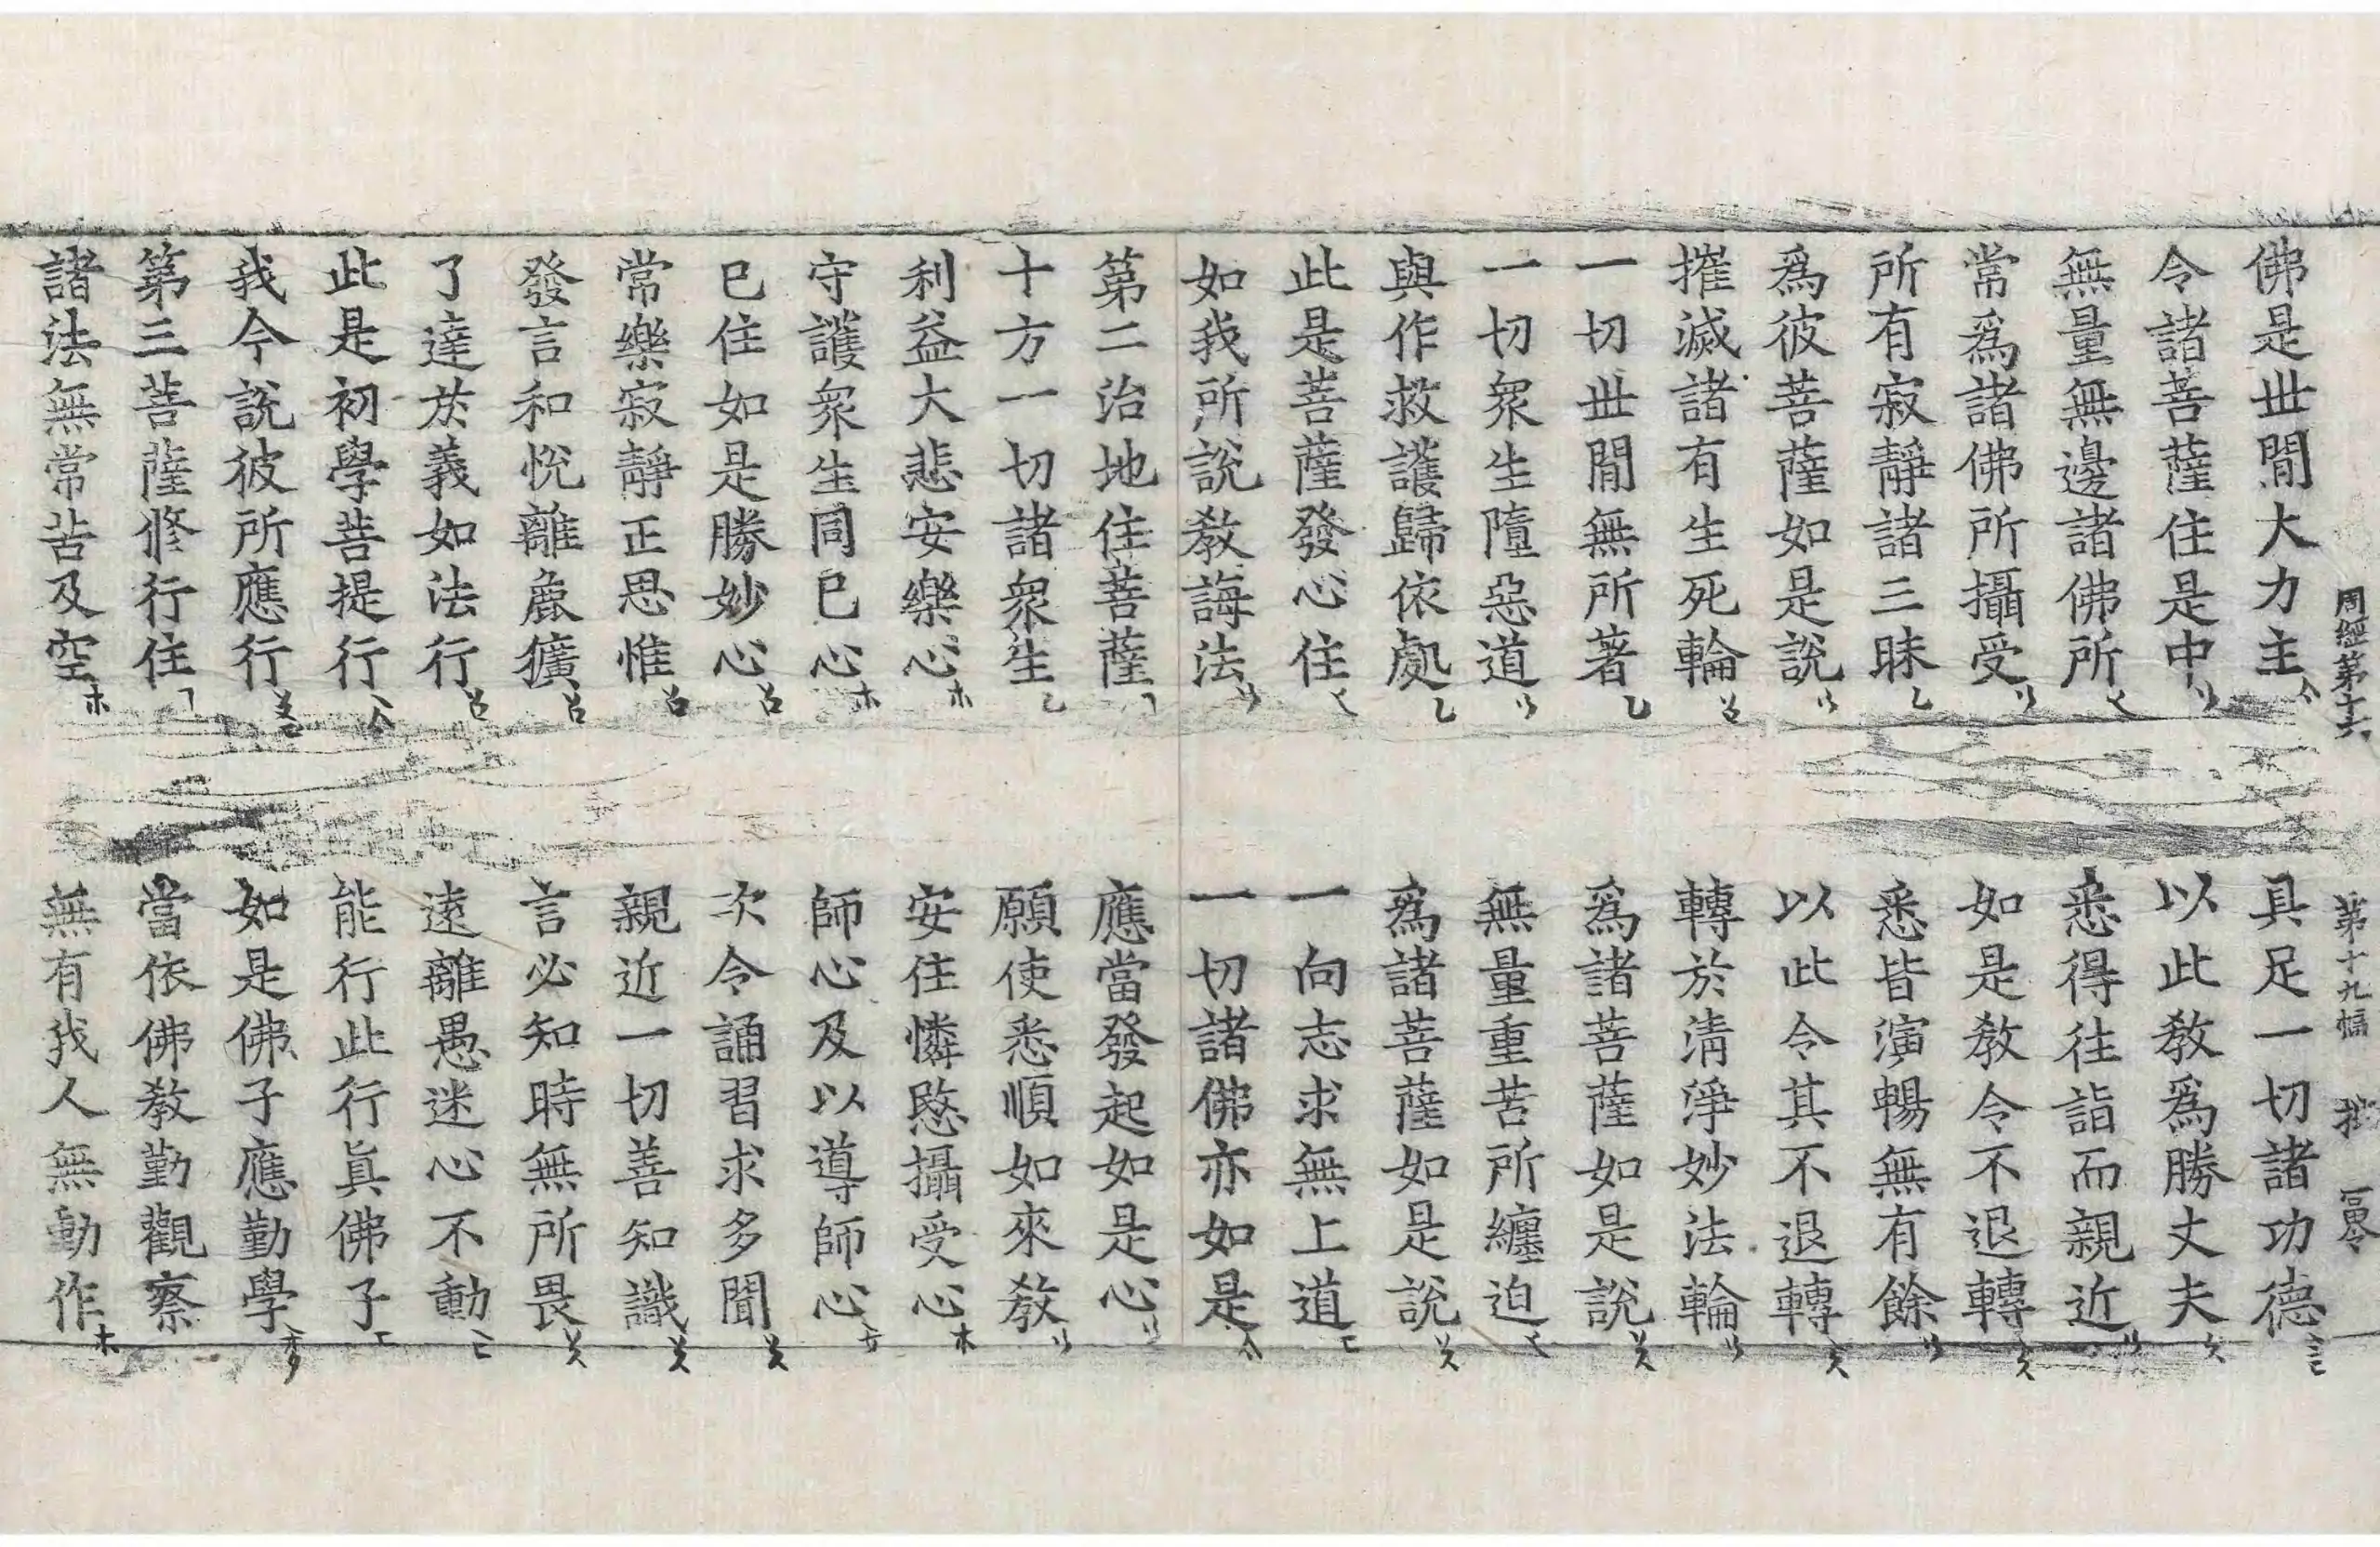 周經第十六 第十九幅
佛是世間大力主 具足一切諸功德
令諸菩薩住是中 以此教爲勝丈夫
無量無邊諸佛所 悉得往詣而親近
常爲諸佛所攝受 如是教令不退轉
所有寂靜諸三昧 悉皆演暢無有餘
爲彼菩薩如是說 以此令其不退轉
摧滅諸有生死輪 轉於清淨妙法輪
一切世間無所著 爲諸菩薩如是說
一切衆生墮惡道 無量重苦所纏迫
與作救護歸依處 爲諸菩薩如是說
此是菩薩發心住 一向志求無上道
如我所說教誨法 一切諸佛亦如是
第二治地住菩薩 應當發起如是心
十方一切諸衆生 願使悉順如來教
利益大悲安樂心 安住憐愍攝受心
守護衆生同己心 師心及以導師心
已住如是勝妙心 次令誦習求多聞
常樂寂靜正思惟 親近一切善知識
發言和悅離麁獷 言必知時無所畏
了達於義如法行 遠離愚迷心不動
此是初學菩提行 能行此行眞佛子
我今說彼所應行 如是佛子應勤學
第三菩薩修行住 當依佛教勤觀察
諸法無常苦及空 無有我人無動作